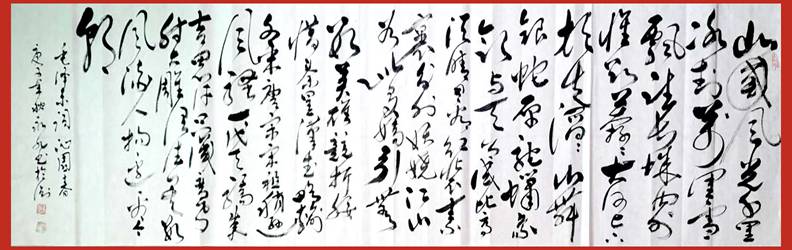 北国风光千里
冰封万里雪
飘望长城内外
惟余莽莽大河上下
顿失滔滔山舞
银蛇原驰蜡象
欲与天公试比高
须晴日看红装素
裹分外妖娆江山
如此多娇引无
数英雄竞折腰
惜秦皇汉武略输
文采唐宗宋祖稍逊
风骚一代天骄成
吉思汗只识弯弓
射大雕俱往矣数
风流人物还看今
朝
毛泽东词沁园春
庚子年